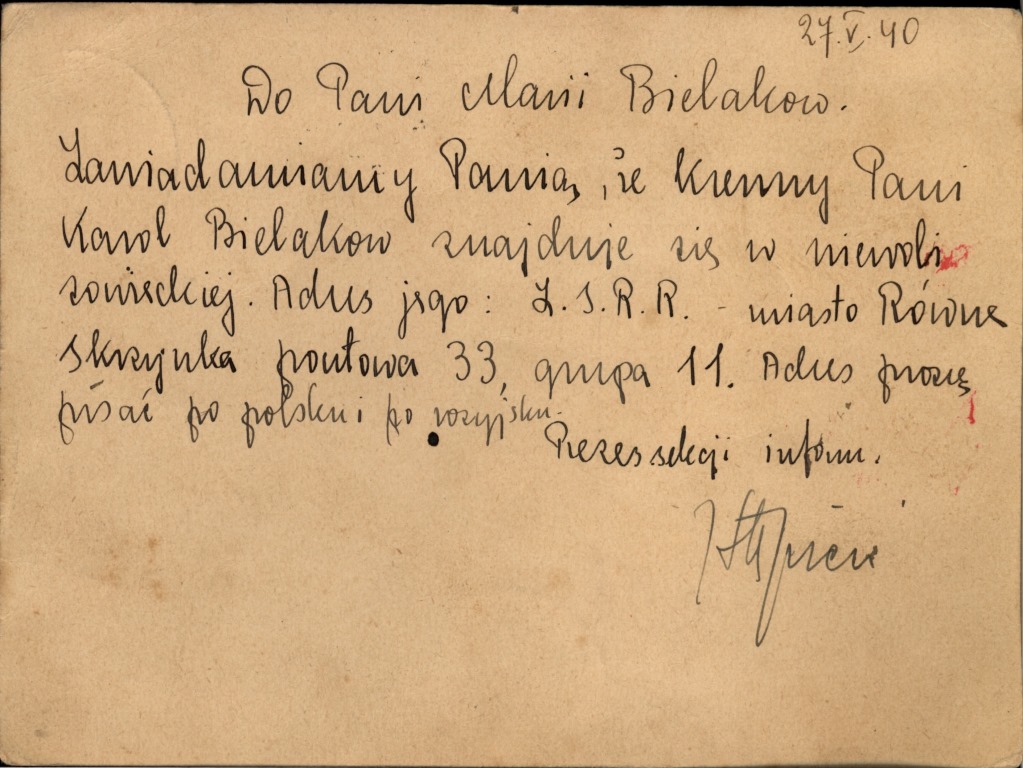 27.V.40
Do Pani Marii Bielakow.
Zawiadamiamy Panią, że krewny Pani
Karol Bielakow znajduje się w niewoli
sowieckiej. Adres jego: Z.S.R.R. - miasto Równe
skrzynka pocztowa 33, grupa 11. Adres proszę
pisać po polsku i po rosyjsku.
Prezes sekcji inform.